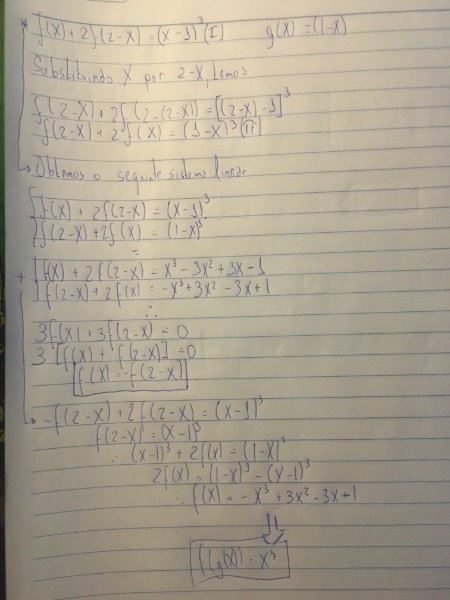 f(x) + 2f(2-x) = (x-1)³ (I) g(x) = (1-x)
Substituindo x por 2-x, temos
f(2-x) + 2f(2-(2-x)) = [(2-x)-1]³
f(2-x) + 2f(x) = (1-x)³ (II)
Obtemos o seguinte sistema linear
f(x) + 2f(2-x) = (x-1)³
f(2-x) + 2f(x) = (1-x)³
=
+ f(x) + 2f(2-x) = x³ - 3x² + 3x - 1
f(2-x) + 2f(x) = -x³ + 3x² - 3x + 1
∴
3f(x) + 3f(2-x) = 0
3[f(x) + f(2-x)] = 0
f(x) = -f(2-x)
-f(2-x) + 2f(2-x) = (x-1)³
f(2-x) = (x-1)³
∴ (x-1)³ + 2f(x) = (1-x)³
2f(x) = (1-x)³ - (x-1)³
∴ f(x) = -x³ + 3x² - 3x + 1
⇓
f(g(x)) = x³